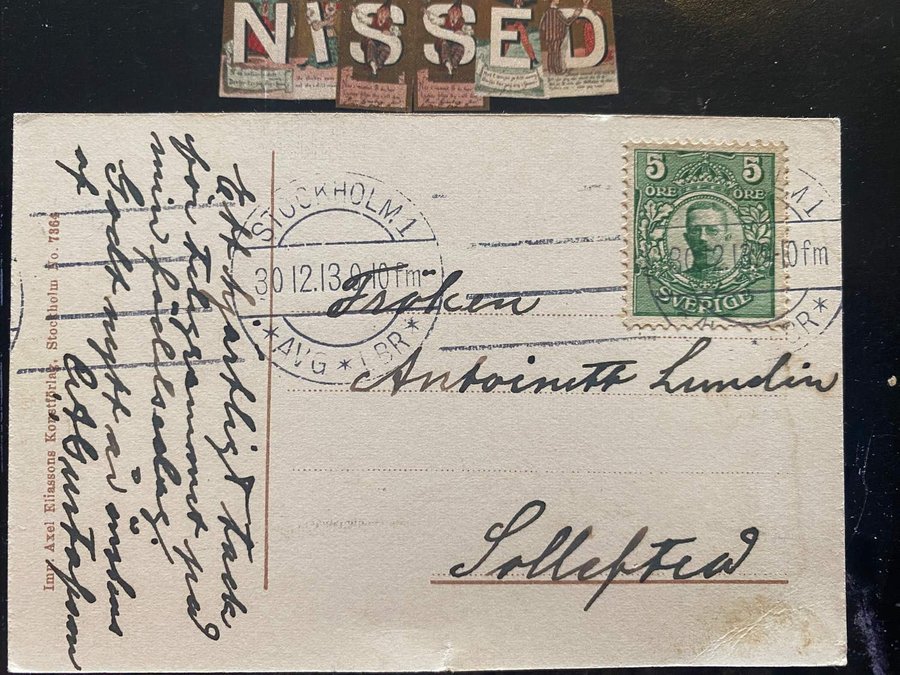 NISSED
Ett hjärtligt tack
för telegrammet på
min födelsedag.
Godt nytt år önskas
af
Imp. Axel Eliassons Konstförlag, Stockholm No. 7364
STOCKHOLM.1
30.12.13.9-10fm
*AVG*LBR*
5 5
ÖRE ÖRE
SVERIGE
Fröken
Antoinett Lundin
Sollefteå